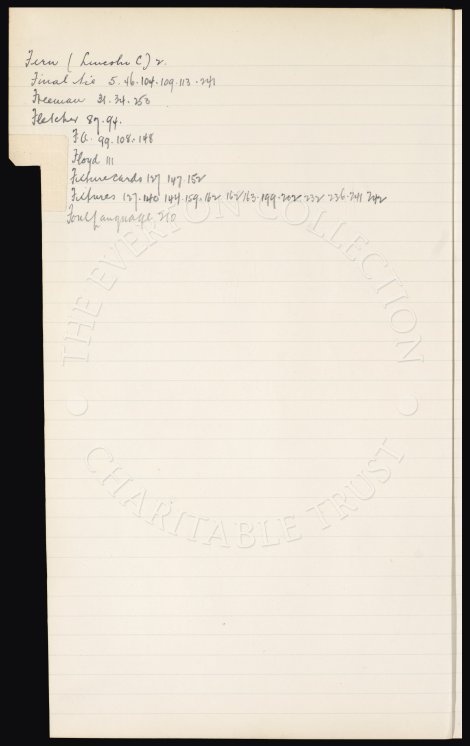 Fern (Lincoln C) 2.
Final tie 5. 46. 104. 109. 113. 241
Freeman 31. 34. 253
Fletcher 87. 94.
F.A. 99. 108. 148
Floyd 111
Fixture cards 127 147 152
Fixtures 127. 140 144. 159. 162. 162 163. 199. 202 232 236. 241 242
Foul Language 210
THE EVERTON COLLECTION
CHARITABLE TRUST